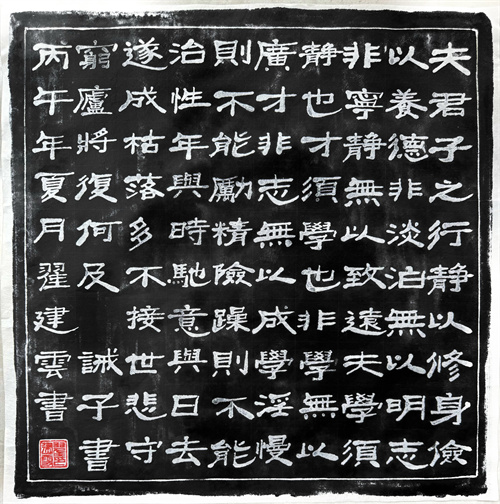 夫君子之行靜以修身儉
以養德非淡泊無以明志
非寧靜無以致遠夫學須
靜也才須學也非學無以
廣才非志無以成學淫慢
則不能勵精險躁則不能
治性年與時馳意與日去
遂成枯落多不接世悲守
窮廬將復何及 誡子書
丙午年夏月翟建雲書